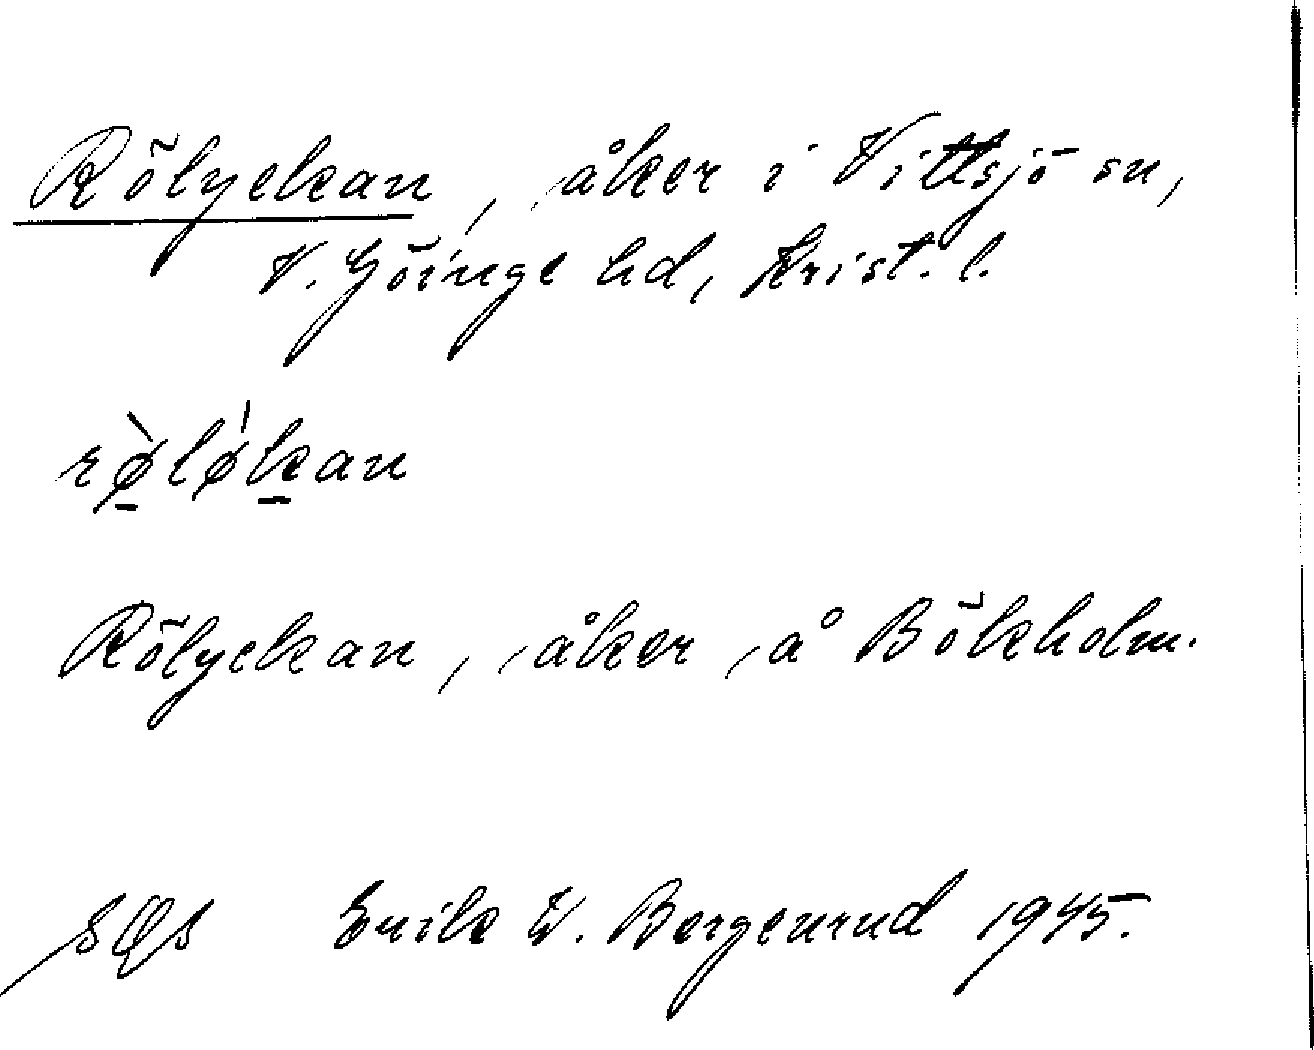 Rölyckan, åker i Vittsjö sn,
V. Göinge hd, Krist. l.
rø̠̀lø̍k̠an
Rölyckan, åker å Bökholm.
Erik W. Bergenrud 1945.